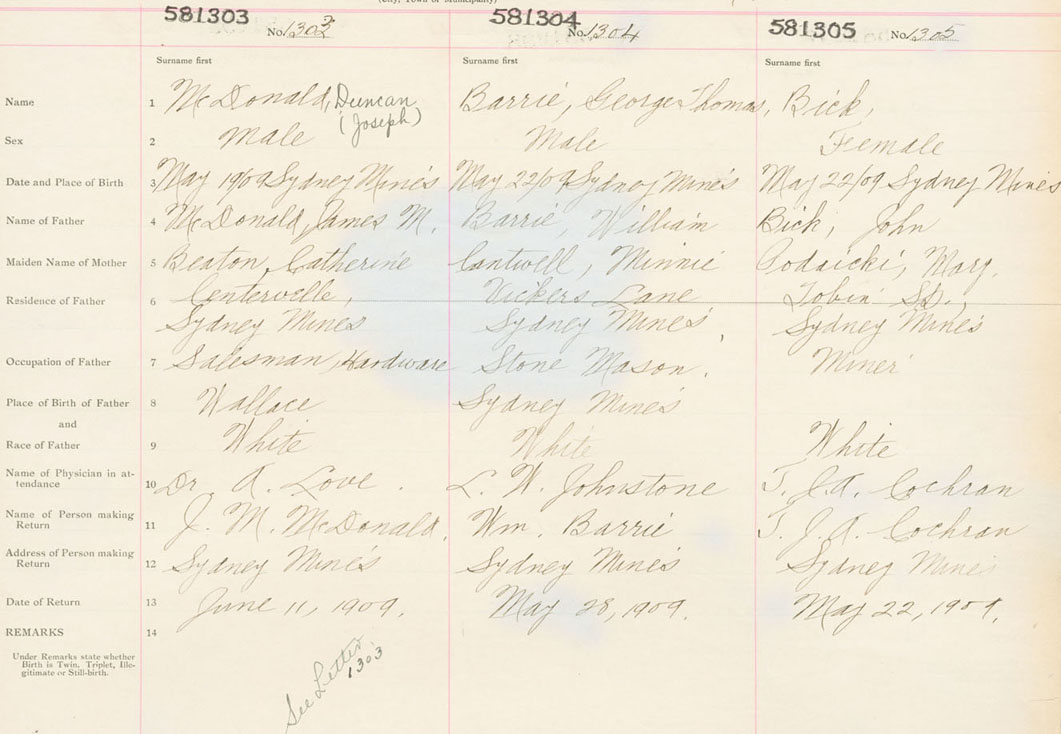 (City, Town or Municipality)
581303 No. 1303 581304 No. 1304 581305 No. 1305
Surname first Surname first Surname first
Name 1 McDonald, Duncan Barrie, George Thomas, Bick,
(Joseph)
Sex 2 Male Male Female
Date and Place of Birth 3 May 1909 Sydney Mines May 22/09 Sydney Mines May 22/09 Sydney Mines
Name of Father 4 McDonald, James M. Barrie, William Bick, John
Maiden Name of Mother 5 Beaton, Catherine Cantwell, Minnie Mary.
Residence of Father 6 Centerville, Vickers Lane Tobin St.,
Sydney Mines Sydney Mines Sydney Mines
Occupation of Father 7 Salesman, Hardware Stone Mason. Miner
Place of Birth of Father 8 Wallace Sydney Mines
and
Race of Father 9 White White White
Name of Physician in at-
tendance 10 Dr. A. Love. L. W. Johnstone T. J. A. Cochran
Name of Person making
Return 11 J. M. McDonald. Wm. Barrie T. J. A. Cochran
Address of Person making
Return 12 Sydney Mines Sydney Mines Sydney Mines
Date of Return 13 June 11, 1909. May 28, 1909. May 22, 1909.
REMARKS 14
Under Remarks state whether
Birth is Twin, Triplet, Ille-
gitimate or Still-birth.
See Letter
1303